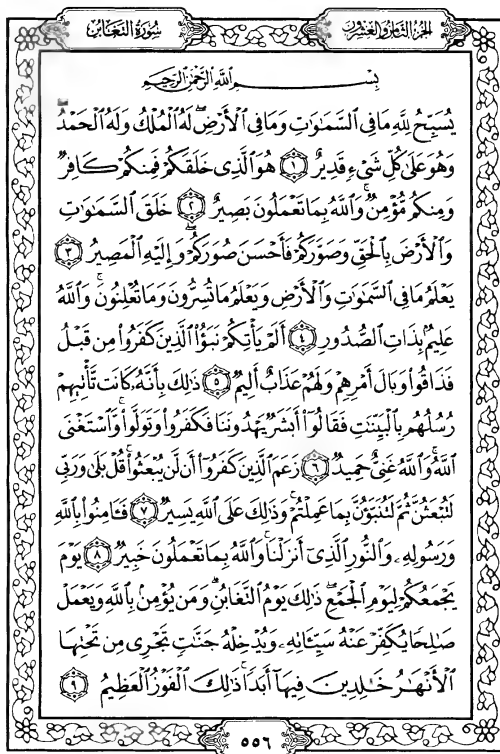 الجزء الثامن والعشرون
سورة التغابن
بِسْمِ اللَّهِ الرَّحْمَٰنِ الرَّحِيمِ
يُسَبِّحُ لِلَّهِ مَا فِي السَّمَٰوَٰتِ وَمَا فِي الْأَرْضِ ۖ لَهُ الْمُلْكُ وَلَهُ الْحَمْدُ ۖ
وَهُوَ عَلَىٰ كُلِّ شَيْءٍ قَدِيرٌ ١ هُوَ الَّذِي خَلَقَكُمْ فَمِنكُمْ كَافِرٌ
وَمِنكُم مُّؤْمِنٌ ۚ وَاللَّهُ بِمَا تَعْمَلُونَ بَصِيرٌ ٢ خَلَقَ السَّمَٰوَٰتِ
وَالْأَرْضَ بِالْحَقِّ وَصَوَّرَكُمْ فَأَحْسَنَ صُوَرَكُمْ ۖ وَإِلَيْهِ الْمَصِيرُ ٣
يَعْلَمُ مَا فِي السَّمَٰوَٰتِ وَالْأَرْضِ وَيَعْلَمُ مَا تُسِرُّونَ وَمَا تُعْلِنُونَ ۚ وَاللَّهُ
عَلِيمٌ بِذَاتِ الصُّدُورِ ٤ أَلَمْ يَأْتِكُمْ نَبَؤُا۟ الَّذِينَ كَفَرُوا۟ مِن قَبْلُ
فَذَاقُوا۟ وَبَالَ أَمْرِهِمْ وَلَهُمْ عَذَابٌ أَلِيمٌ ٥ ذَٰلِكَ بِأَنَّهُۥ كَانَت تَّأْتِيهِمْ
رُسُلُهُم بِالْبَيِّنَٰتِ فَقَالُوٓا۟ أَبَشَرٌ يَهْدُونَنَا فَكَفَرُوا۟ وَتَوَلَّوا۟ ۚ وَّاسْتَغْنَى
اللَّهُ ۚ وَاللَّهُ غَنِيٌّ حَمِيدٌ ٦ زَعَمَ الَّذِينَ كَفَرُوٓا۟ أَن لَّن يُبْعَثُوا۟ ۚ قُلْ بَلَىٰ وَرَبِّي
لَتُبْعَثُنَّ ثُمَّ لَتُنَبَّؤُنَّ بِمَا عَمِلْتُمْ ۚ وَذَٰلِكَ عَلَى اللَّهِ يَسِيرٌ ٧ فَـَٔامِنُوا۟ بِاللَّهِ
وَرَسُولِهِۦ وَالنُّورِ الَّذِيٓ أَنزَلْنَا ۚ وَاللَّهُ بِمَا تَعْمَلُونَ خَبِيرٌ ٨ يَوْمَ
يَجْمَعُكُمْ لِيَوْمِ الْجَمْعِ ۖ ذَٰلِكَ يَوْمُ التَّغَابُنِ ۗ وَمَن يُؤْمِنۢ بِاللَّهِ وَيَعْمَلْ
صَٰلِحًا يُكَفِّرْ عَنْهُ سَيِّـَٔاتِهِۦ وَيُدْخِلْهُ جَنَّٰتٍ تَجْرِي مِن تَحْتِهَا
الْأَنْهَٰرُ خَٰلِدِينَ فِيهَآ أَبَدًا ۚ ذَٰلِكَ الْفَوْزُ الْعَظِيمُ ٩
٥٥٦